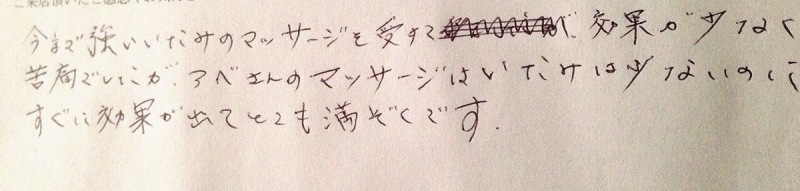 ご来店頂いたご感想
今まで強いいたみのマッサージを受けて 効果が少なく
苦痛でいたが、アベさんのマッサージはいたみは少ないのに
すぐに効果が出てとても満ぞくです.